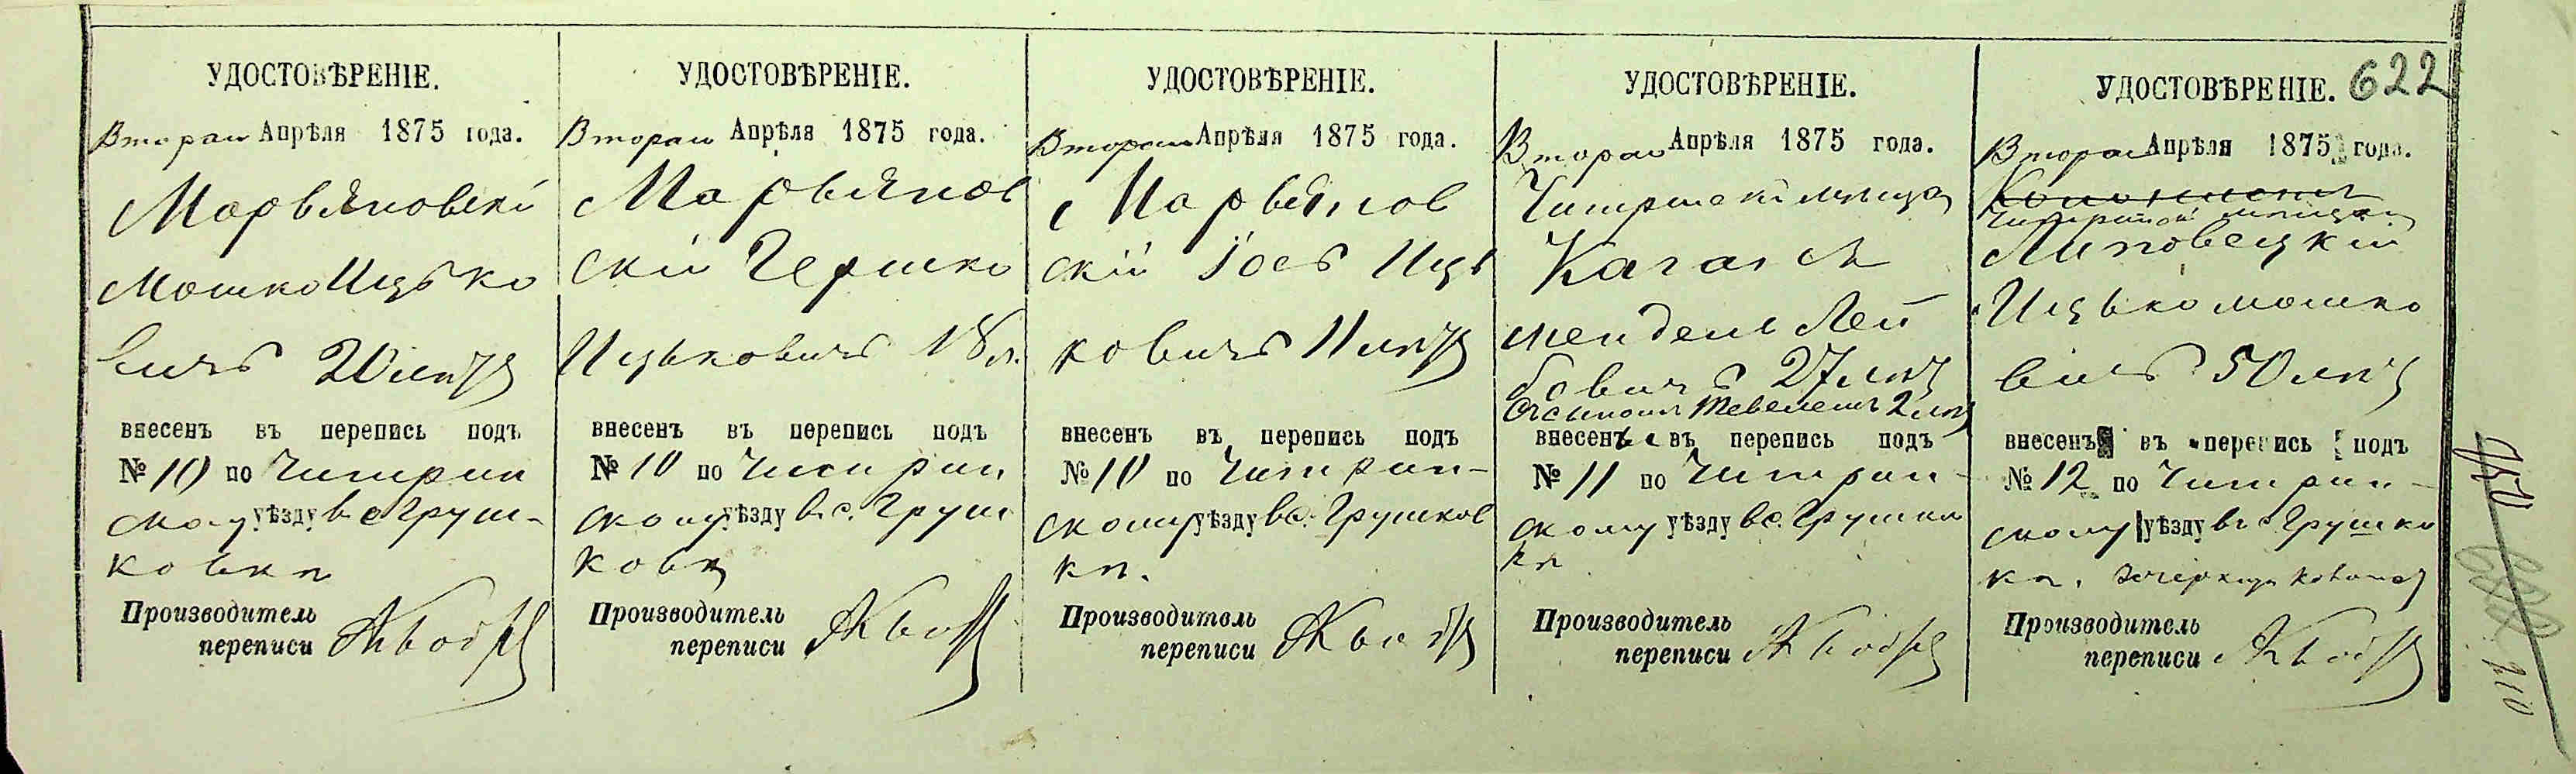 622
УДОСТОВѢРЕНІЕ.
Втораго Апрѣля 1875 года.
Марьяновскі
Мошко Ицько
вичъ 20 лѣтъ
внесенъ въ перепись подъ
№ 10 по Чигирин
скому уѣзду в с Груш-
ковкѣ
Производитель
переписи
УДОСТОВѢРЕНІЕ.
Втораго Апрѣля 1875 года.
Марьянов
скій Гершко
Ицьковичъ 18 л.
внесенъ въ перепись подъ
№ 10 по Чигирин
скому уѣзду в с. Груш
ковк
Производитель
переписи
УДОСТОВѢРЕНІЕ.
Втораго Апрѣля 1875 года.
Марьянов
скій Іосъ Ицъ
ковичъ 11 лѣтъ
внесенъ въ перепись подъ
№ 10 по Чигирин-
скому уѣзду в с. Грушков
кѣ.
Производитель
переписи
УДОСТОВѢРЕНІЕ.
Втораго Апрѣля 1875 года.
Каган
мендель Лей
бовичъ 27 лѣтъ
съ сыномъ 2 лѣтъ
внесенъ въ перепись подъ
№ 11 по Чигирин-
скому уѣзду в с. Грушков
кѣ
Производитель
переписи
УДОСТОВѢРЕНІЕ.
Втораго Апрѣля 1875 года.
Липовецкій
Ицько мошко
вичъ 50 лѣтъ
внесенъ въ перепись подъ
№ 12 по Чигирин-
скому уѣзду въ с Грушков
кѣ.
Производитель
переписи
210